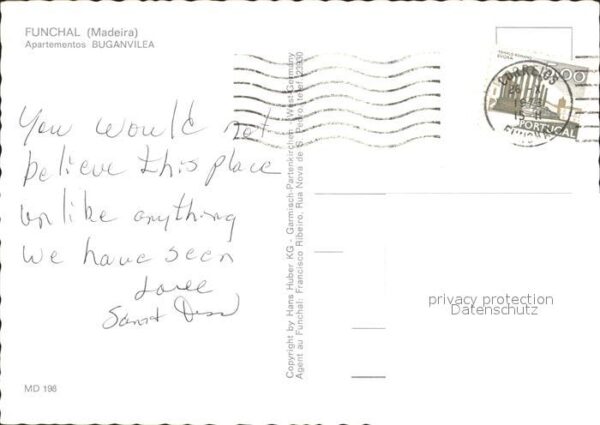 FUNCHAL (Madeira)
Apartementos BUGANVILEA
You would not
believe this place
unlike anything
we have seen
Love
MD 198
Copyright by Hans Huber KG - Garmisch-Partenkirchen / West-Germany
Agent au Funchal: Francisco Ribeiro, Rua Nova de S. Pedro telef. 23930
CORREIOS
PORTUGAL
privacy protection
Datenschutz